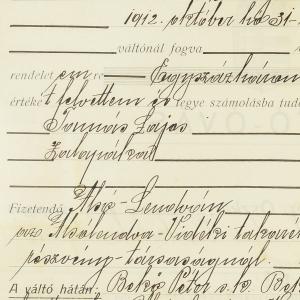 1912. október hó 31-
váltónál fogva
rendelet em re Egyszázhárom
értéke felvettem és tegye számolásba tud
Tamás Lajos
Zalapátkal
Fizetendő Alsó-Lendván
az Alsólendva-Vidéki takarék
részvény-társaságnál.
A váltó hátán: Bekő Péter s. k. Be